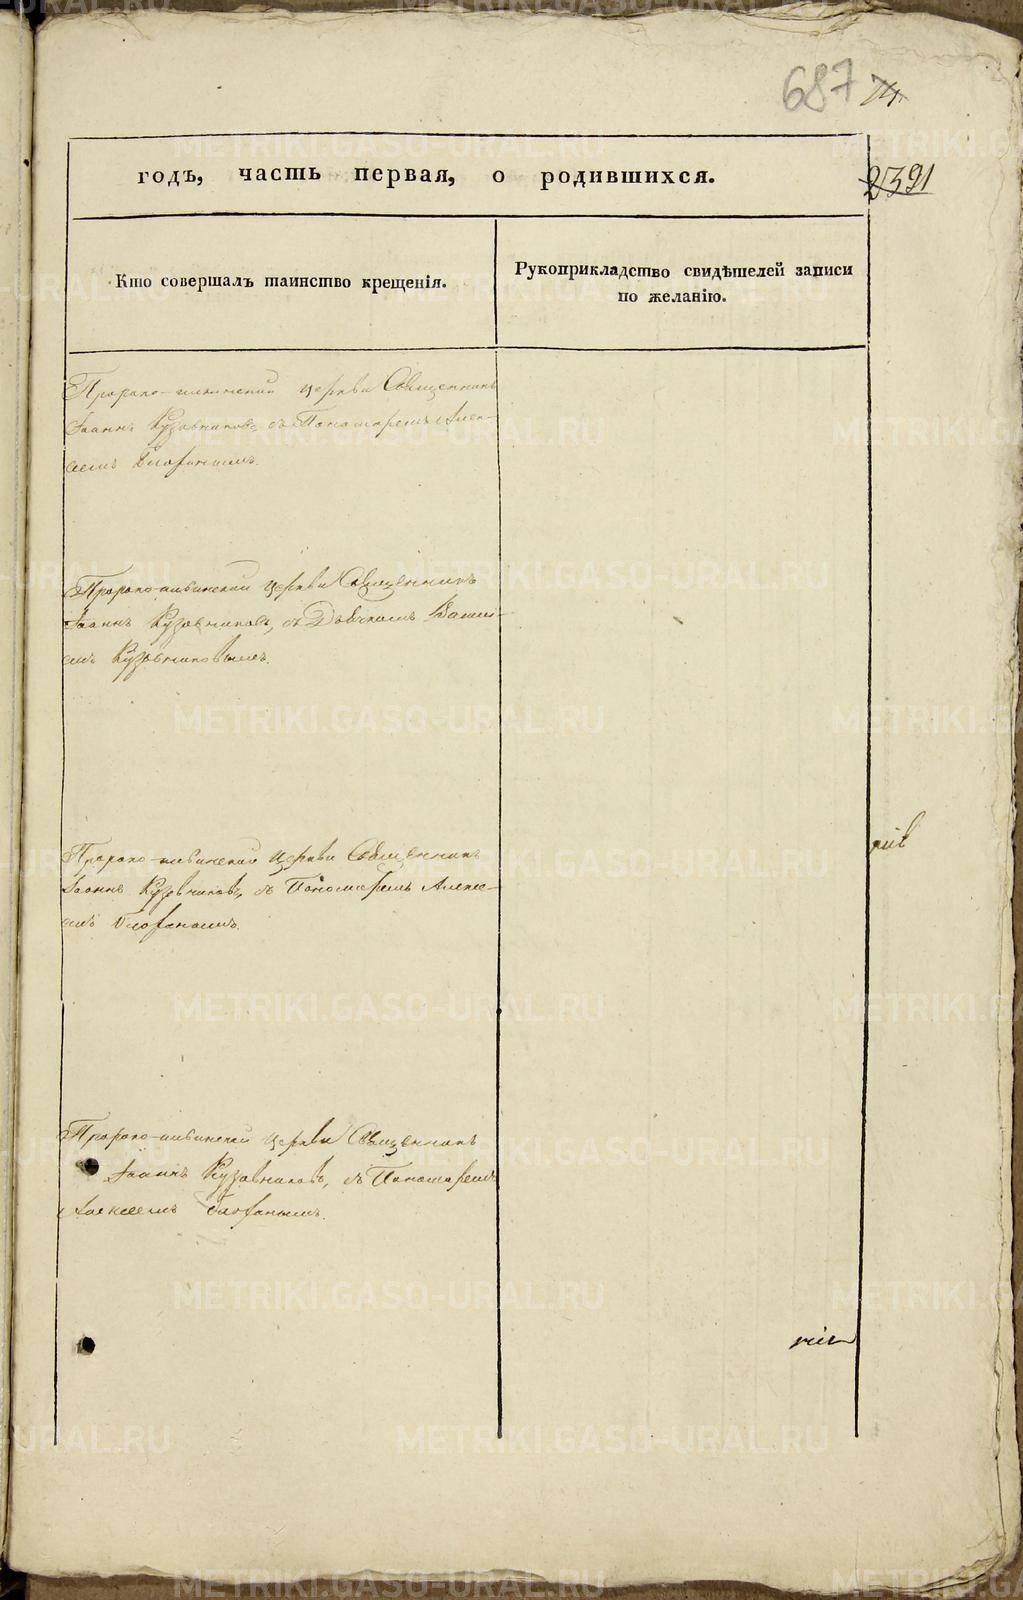 687
2391
годъ, часть первая, о родившихся.
Кто совершалъ таинство крещенія.
Рукоприкладство свидѣтелей записи
по желанію.
Пророко-ильинской церкви Священникъ
Іоаннъ Кузовниковъ, съ Пономаремъ Алек-
сеемъ
Пророко-ильинской церкви Священникъ
Іоаннъ Кузовниковъ, съ Дьячкомъ Васили-
емъ Кузовниковымъ.
Пророко-ильинской церкви Священникъ
Іоаннъ Кузовниковъ, съ Пономаремъ Алексе-
емъ
Пророко-ильинской церкви Священникъ
Іоаннъ Кузовниковъ, съ Пономаремъ
Алексеемъ
METRIKI.GASO-URAL.RU